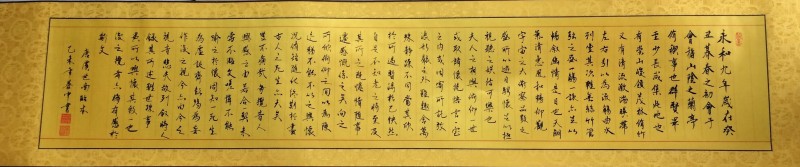 永和九年歲在癸
丑暮春之初會于
會稽山陰之蘭亭
脩禊事也群賢畢
至少長咸集此地
有崇山峻領茂林脩竹
又有清流激湍映帶
左右引以為流觴曲水
列坐其次雖無絲竹管
弦之盛一觴一詠亦足以
暢敘幽情是日也天朗
氣清惠風和暢仰觀
宇宙之大俯察品類之
盛所以遊目騁懷足以極
視聽之娛信可樂也
夫人之相與俯仰一世
或取諸懷抱悟言一室
之內或因寄所託放
浪形骸之外雖趣舍萬
殊靜躁不同當其欣
於所遇暫得於己快然
自足不知老之將至及
其所之既惓情隨事
遷感慨係之矣向之
所欣俛仰之間以為陳
跡猶不能不以之興懷
況脩短隨化終期於盡
古人云死生亦大矣
豈不痛哉每攬昔人
興感之由若合一契未
嘗不臨文嗟悼不能
喻之於懷固知一死生
為虛誕齊彭殤為妄
作後之視今亦由今之
視昔悲夫故列敘時人
錄其所述雖世殊事
異所以興懷其致一也
後之攬者亦將有感於
斯文
唐虞世南臨本
乙未年春中書